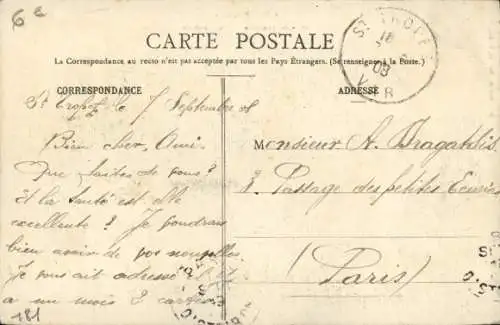 6 e
CARTE POSTALE
La Correspondance au recto n'est pas acceptée par tous les Pays Étrangers. (Se renseigner à la Poste.)
CORRESPONDANCE
St Tropez le 7 Septembre 08
Bien cher Ami
Que faites de vous?
et la santé est elle
excellente? Je voudrais
bien avoir de vos nouvelles
Je vous ait adressé
a un mois 2 cartes
181
ADRESSE
ST TROPEZ
18
08
VAR
Monsieur A.
8. Passage des petites Ecuries
Paris